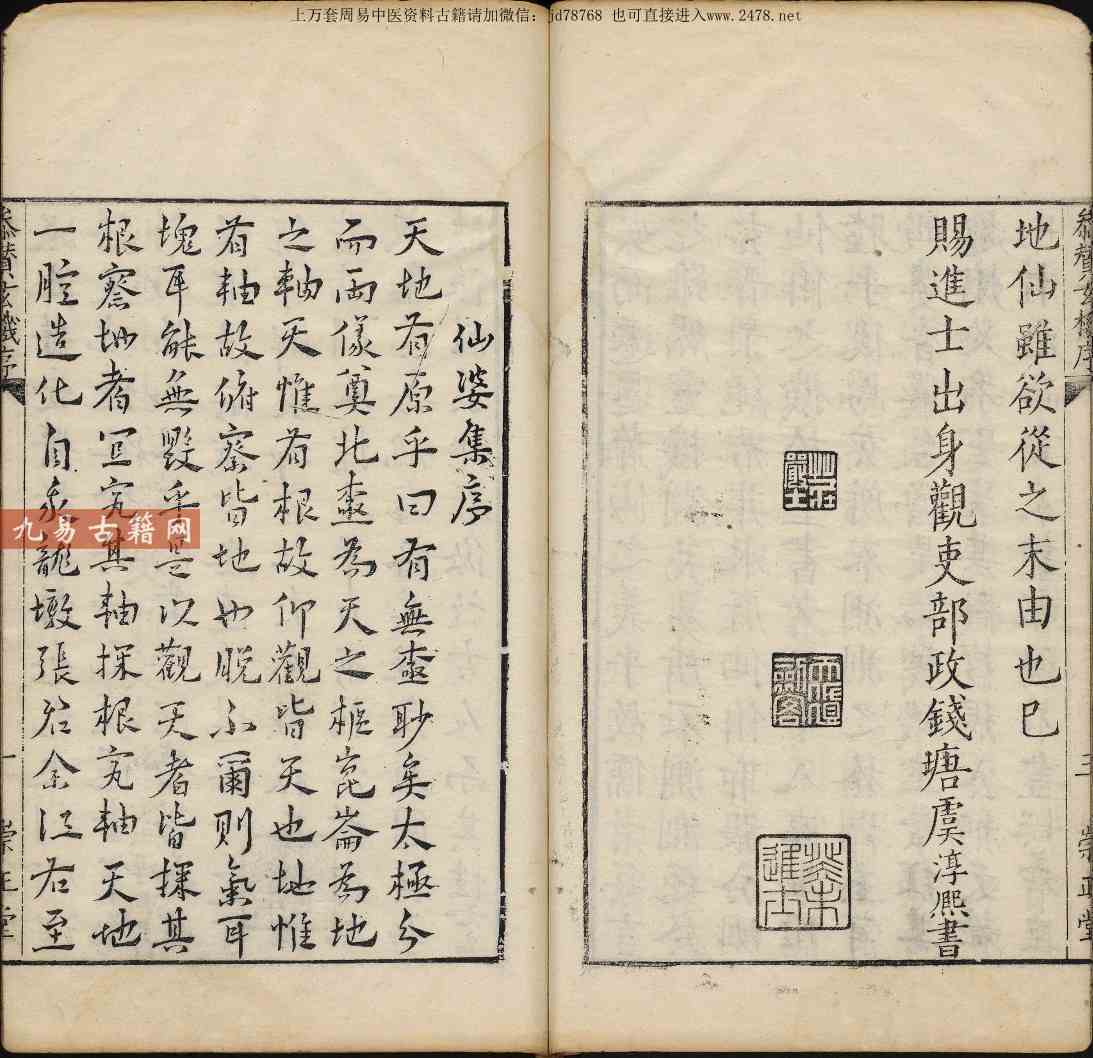 上万套周易中医资料古籍请加微信：jd78768 也可直接进入www.2478.net
地仙雖欲從之末由也已
賜進士出身觀吏部政錢塘虞淳熙書
三
崇正堂
仙婆集序
天地有原乎曰有無臺眇矣太極分
而兩儀奠北臺為天之樞崑崙為地
之軸天惟有根故仰觀皆天也地惟
有軸故俯察皆地也脫不爾則氣耳
塊耳能無毀乎是以觀天者皆探其
根察地者宜究其軸探根究軸天地
一腔造化自我龍墩張君余江右至
參贊玄機序
一
崇正堂
九易古籍网